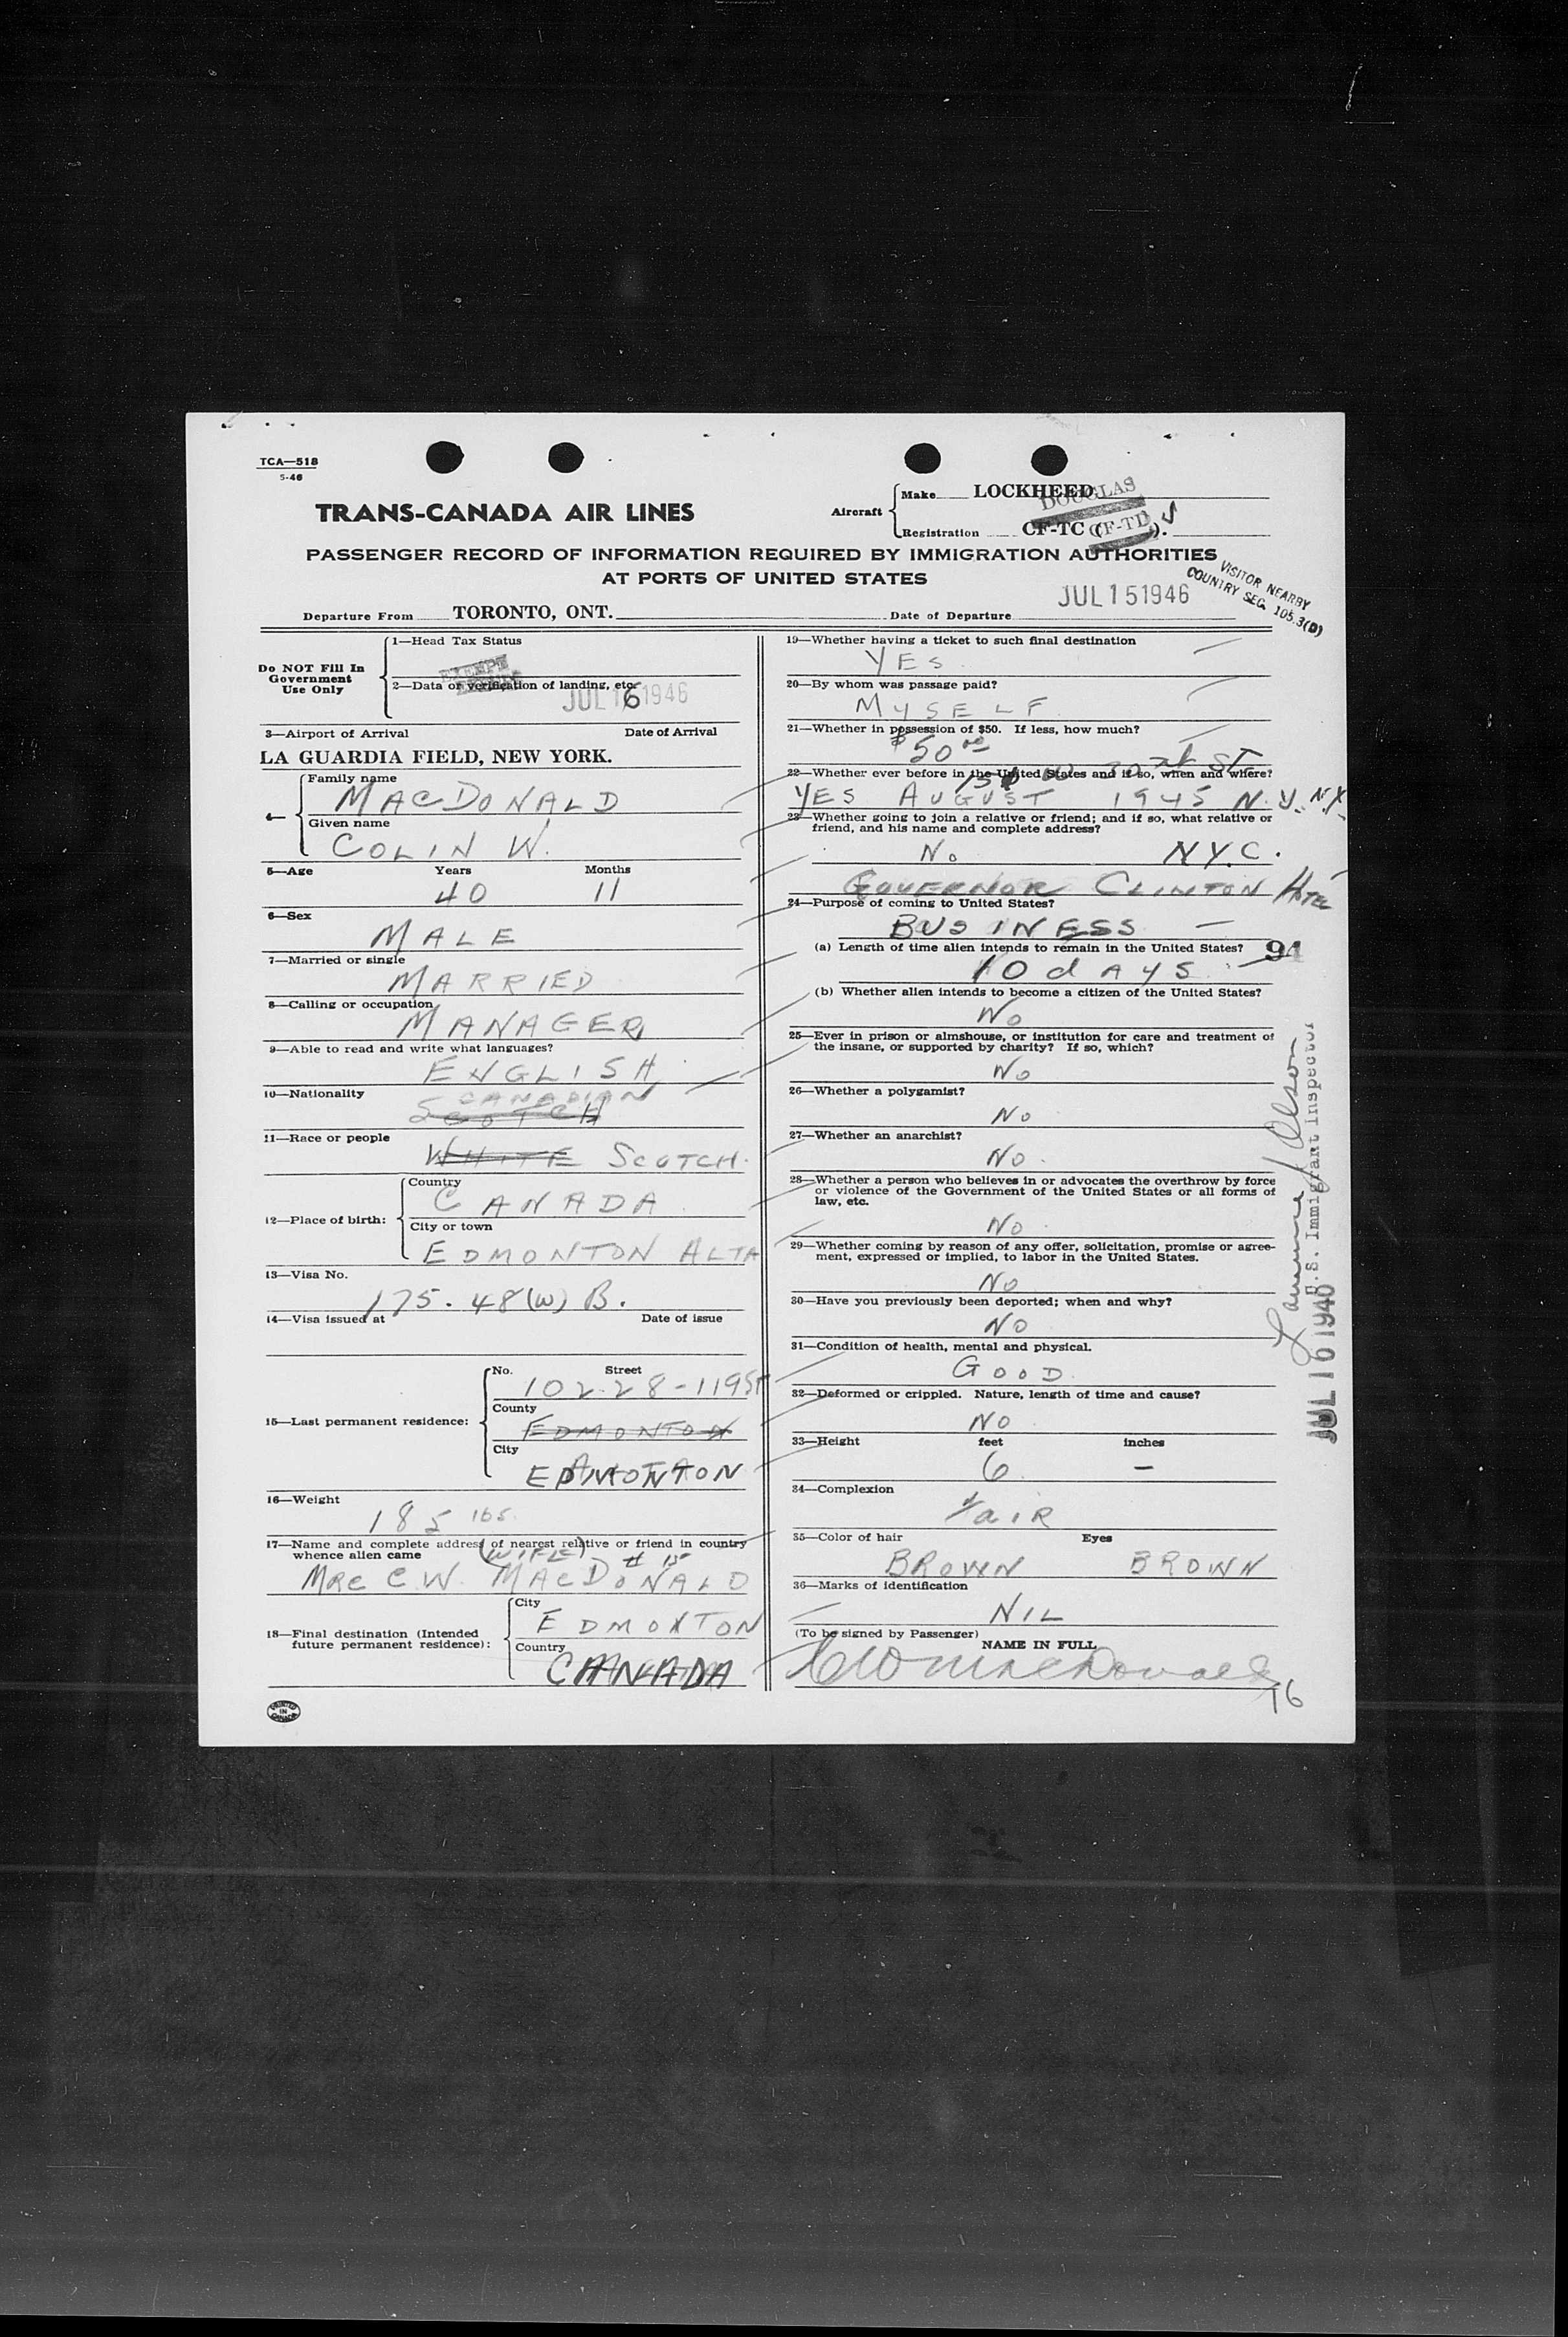 TCA—518
5-46
TRANS-CANADA AIR LINES
Aircraft
Make LOCKHEED
DOUGLAS
Registration CF-TC ( ).
CF-TD
PASSENGER RECORD OF INFORMATION REQUIRED BY IMMIGRATION AUTHORITIES
AT PORTS OF UNITED STATES
VISITOR NEARBY
COUNTRY SEC. 105.3(D)
Departure From TORONTO, ONT. Date of Departure JUL 15 1946
Do NOT Fill In
Government
Use Only
1—Head Tax Status
EXEMPT
2—Data or verification of landing, etc.
JUL 16 1946
3—Airport of Arrival Date of Arrival
LA GUARDIA FIELD, NEW YORK.
4—
Family name
MACDONALD
Given name
COLIN W.
5—Age Years Months
40 11
6—Sex
MALE
7—Married or single
MARRIED
8—Calling or occupation
MANAGER
9—Able to read and write what languages?
ENGLISH
10—Nationality
CANADIAN
SCOTCH
11—Race or people
WHITE SCOTCH.
12—Place of birth:
Country
CANADA
City or town
EDMONTON ALTA
13—Visa No.
175.48(W) B.
14—Visa issued at Date of issue
15—Last permanent residence:
No. Street
102.28-119 ST
County
EDMONTON
City
EDMONTON
16—Weight
185 lbs.
17—Name and complete address of nearest relative or friend in country
whence alien came
(WIFE) # 15
MRS C.W. MACDONALD
18—Final destination (Intended
future permanent residence):
City
EDMONTON
Country
CANADA
PRINTED
IN
CANADA
19—Whether having a ticket to such final destination
YES
20—By whom was passage paid?
MYSELF
21—Whether in possession of $50. If less, how much?
$50 00
22—Whether ever before in the United States and if so, when and where?
YES AUGUST 1945 N.Y. N.Y.
23—Whether going to join a relative or friend; and if so, what relative or
friend, and his name and complete address?
No N.Y.C.
GOVERNOR CLINTON HOTEL
24—Purpose of coming to United States?
BUSINESS
(a) Length of time alien intends to remain in the United States? 94
10 dAYS
(b) Whether alien intends to become a citizen of the United States?
No
25—Ever in prison or almshouse, or institution for care and treatment of
the insane, or supported by charity? If so, which?
No
26—Whether a polygamist?
No
27—Whether an anarchist?
No.
28—Whether a person who believes in or advocates the overthrow by force
or violence of the Government of the United States or all forms of
law, etc.
No
29—Whether coming by reason of any offer, solicitation, promise or agree-
ment, expressed or implied, to labor in the United States.
No
30—Have you previously been deported; when and why?
NO
31—Condition of health, mental and physical.
GOOD
32—Deformed or crippled. Nature, length of time and cause?
NO
33—Height feet inches
6 —
34—Complexion
fair
35—Color of hair Eyes
BROWN BROWN
36—Marks of identification
NIL
(To be signed by Passenger)
NAME IN FULL
CW MacDonald
76
Olson
U.S. Immigrant Inspector
JUL 16 1946